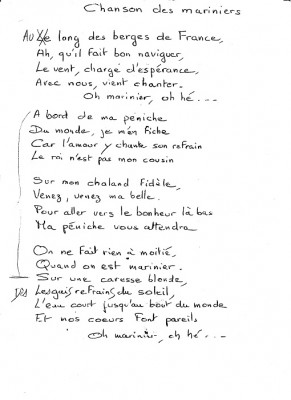 Chanson des mariniers
Au long des berges de France,
Ah, qu'il fait bon naviguer,
Le vent, chargé d'espérance,
Avec nous, vient chanter.
Oh marinier, oh hé....
A bord de ma péniche
Du monde, je m'en fiche
Car l'amour y chante son refrain
Le roi n'est pas mon cousin
Sur mon chaland fidèle,
Venez, venez ma belle.
Pour aller vers le bonheur là bas
Ma péniche vous attendra
On ne fait rien à moitié,
Quand on est marinier.
Sur une caresse blonde,
Des gais refrains du soleil,
L'eau court jusqu'au bout du monde
Et nos coeurs font pareils
Oh marinier, oh hé....